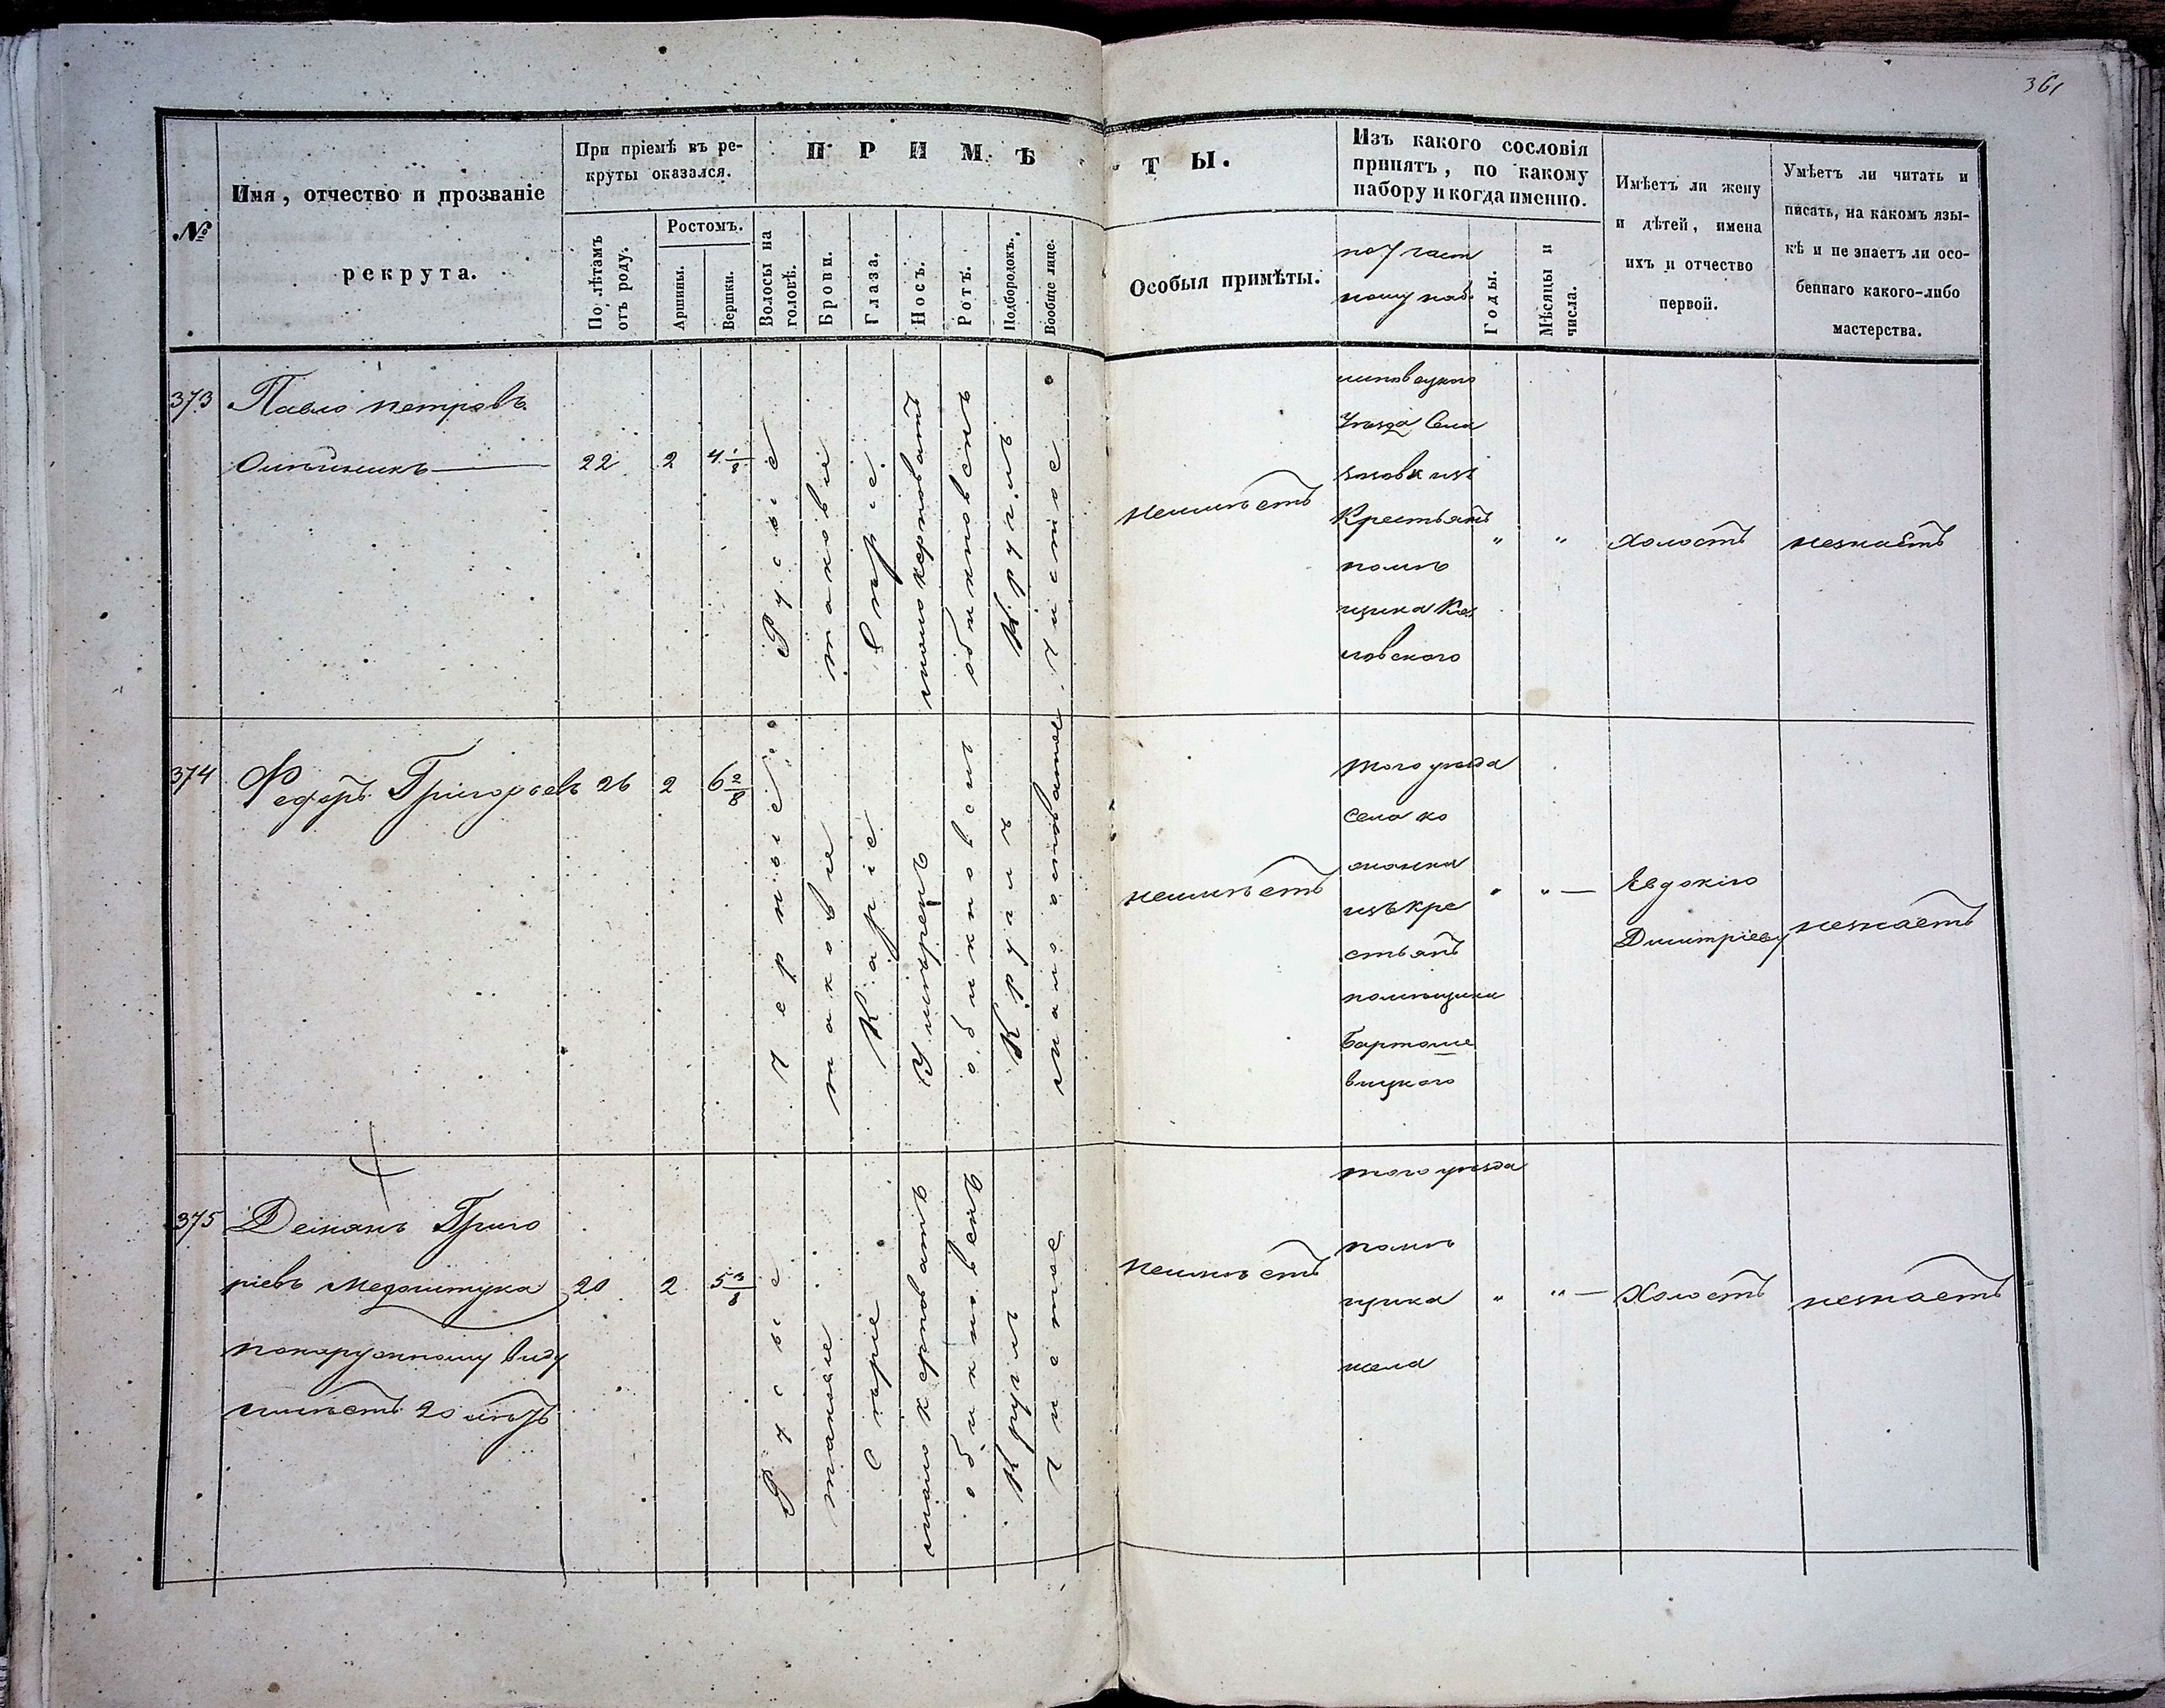 361
№
Имя, отчество и прозваніе
рекрута.
При пріемѣ въ ре-
круты оказался.
По лѣтамъ
отъ роду.
Ростомъ.
Аршины.
Вершки.
ПРИМѢТЫ.
Волосы на
головѣ.
Брови.
Глаза.
Носъ.
Ротъ.
Подбородокъ.
Вообще лице.
Особыя примѣты.
Изъ какого сословія
принятъ, по какому
набору и когда именно.
по 7 част
ному наб.
Годы.
Мѣсяцы и
числа.
Имѣетъ ли жену
и дѣтей, имена
ихъ и отчество
первой.
Умѣетъ ли читать и
писать, на какомъ язы-
кѣ и не знаетъ ли осо-
беннаго какого-либо
мастерства.
373
Павло Петровъ
22
2
4 1/8
Русые
таковіе
Сѣріе
мало керповатъ
обикновенъ
Круглъ
чистое
неимѣетъ
Уѣзда Села
изъ
Крестьянъ
помѣ
щика
"
"
Холостъ
незнаетъ
374
Федоръ Григорьевъ
26
2
6 2/8
Черніе
таковіе
Каріе
Умѣренъ
обикновенъ
Круглъ
мало остоватое
неимѣетъ
того уѣзда
Села
изъ Кре
стьянъ
помѣщика
Бартоше
вицкого
"
" —
Евдокію
Димитріеву
незнаетъ
375
Демянъ Григо
ріевъ Медоштука
понаружному виду
имѣетъ 20 лѣтъ
20
2
5 3/8
Русые
таковіе
Сѣріе
мало керповатъ
обикновенъ
Круглъ
чистое
неимѣетъ
того уѣзда
помѣ
щика
"
" —
Холостъ
незнаетъ